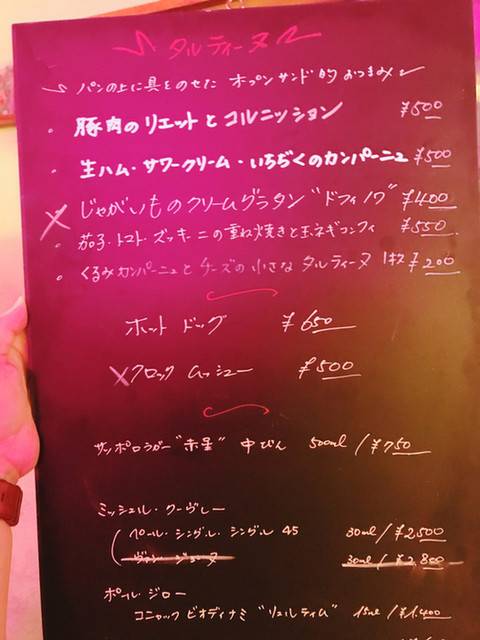 タルティーヌ
パンの上に具をのせた オープンサンド的おつまみ
・豚肉のリエットとコルニッション ¥500
・生ハム・サワークリーム・いちぢくのカンパーニュ ¥500
×じゃがいものクリームグラタン "ドフィノワ" ¥400
・茄子・トマト・ズッキーニの重ね焼きと玉ネギコンフィ ¥550
・くるみカンパーニュとチーズの小さなタルティーヌ 1ヶ ¥200
ホットドッグ ¥650
×クロックムッシュー ¥500
サッポロラガー "赤星" 中びん 500ml / ¥750
ミッシェル・クーヴレー
ペール・シングル・シングル 45 30ml / ¥2,500
ヴァン・ジョーヌ 30ml / ¥2,800
ポール・ジロー
コニャック ビオディナミ "リュルティム" 15ml / ¥1,400